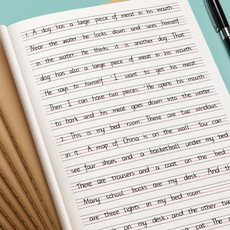 1. A dog has a large piece of meat in his mouth.
Near the water he looks down and sees himself
in the water. He thinks it is another dog. That
dog has also a large piece of meat in his mouth.
He says to himself, I want to get his meat.
Then I can have two pieces. He opens his mouth
to bark and his meat goes down into the water.
2. This is my bed room. There are two windows
in it. A map of China is on the wall. You can
see four shoes and a basketball under my bed
There are trousers and a coat on the bed.
Many school books are my desk. And th
are three lights in my bed room.
on my desk, and the other two
a cat. The